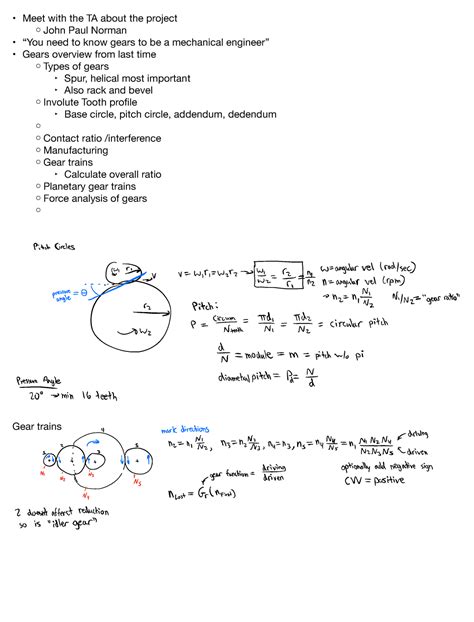 • Meet with the TA about the project
○ John Paul Norman
• “You need to know gears to be a mechanical engineer”
• Gears overview from last time
○ Types of gears
• Spur, helical most important
• Also rack and bevel
○ Involute Tooth profile
• Base circle, pitch circle, addendum, dedendum
○
○ Contact ratio /interference
○ Manufacturing
○ Gear trains
• Calculate overall ratio
○ Planetary gear trains
○ Force analysis of gears
○
Pitch Circles
r₁
v
pressure angle = θ
r₂
ω₂
v = ω₁r₁ = ω₂r₂ → ω₁/ω₂ = r₂/r₁ = n₁/n₂
ω = angular vel (rad/sec)
n = angular vel (rpm)
→ n₂ = n₁ N₁/N₂
N₁/N₂ = "gear ratio"
Pitch:
P = circum/Nteeth = πd₁/N₁ = πd₂/N₂ = circular pitch
d/N = module = m = pitch w/o pi
diametral pitch = Pd = N/d
Pressure Angle
20° → min 16 teeth
Gear trains
mark directions
2 3 4 5
N₁ N₂ N₃ N₅
n₂ = n₁ N₁/N₂, n₃ = n₂ N₂/N₃, n₄ = n₃, n₅ = n₄ N₄/N₅ = n₁ N₁N₂N₄/N₂N₃N₅
driving
driven
gear function = driving/driven
optionally add negative sign
CVV = positive
nlast = Gf (nfirst)
2 doesn't affect reduction
so is "idler gear"